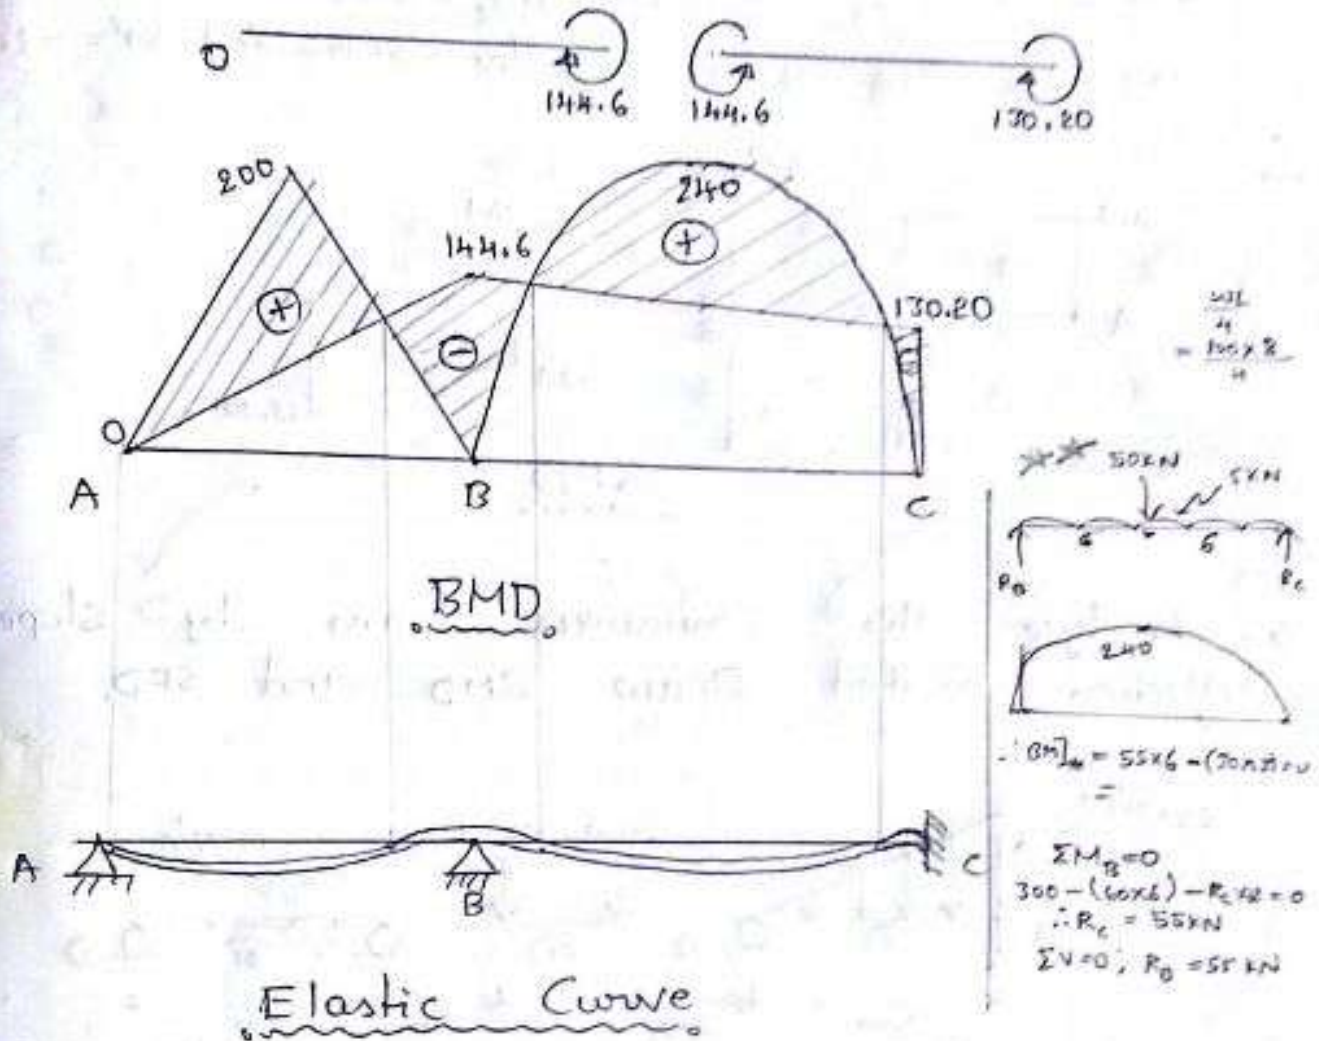 0
144.6 144.6 130.20
200
240
144.6
+
+
130.20
-
0
A B C
BMD
A
B
C
Elastic Curve
= 100 x 8
4
50KN
5KN
6 6
R_B R_C
240
= 55x6 -
=
ΣM_B=0
300 - (60x6) - R_C x12 = 0
∴ R_C = 55KN
ΣV=0, R_B = 55 KN